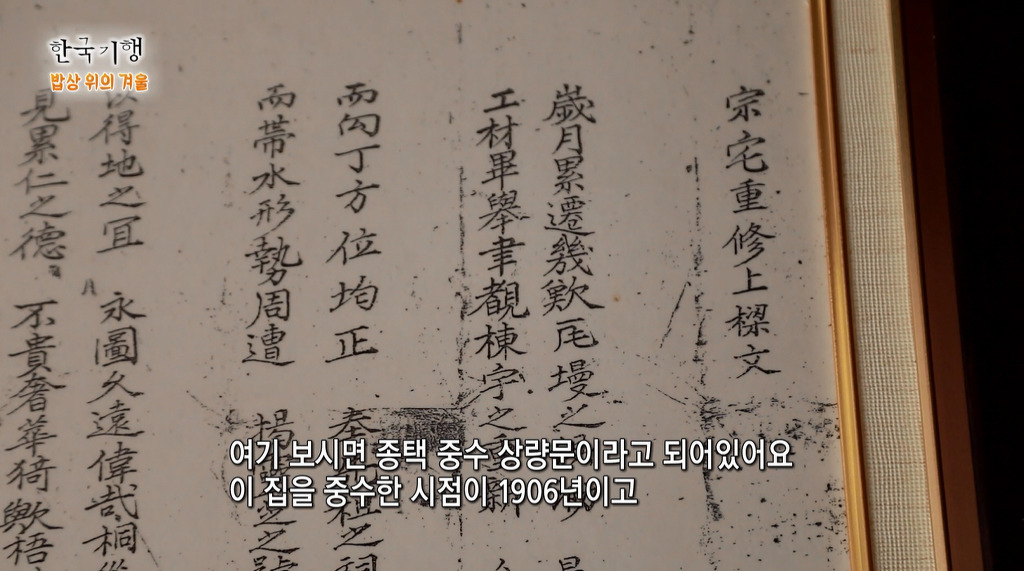 한국기행
밥상 위의 겨울
宗宅重修上樑文
歲月累遷幾歎瓦墁之
工材畢擧聿觀棟宇之
而向丁方位均正
而帶水形勢周遭
得地之冝 永圖久遠偉哉桐
見累仁之德 不貴奢華猗歟梧
여기 보시면 종택 중수 상량문이라고 되어있어요
이 집을 중수한 시점이 1906년이고